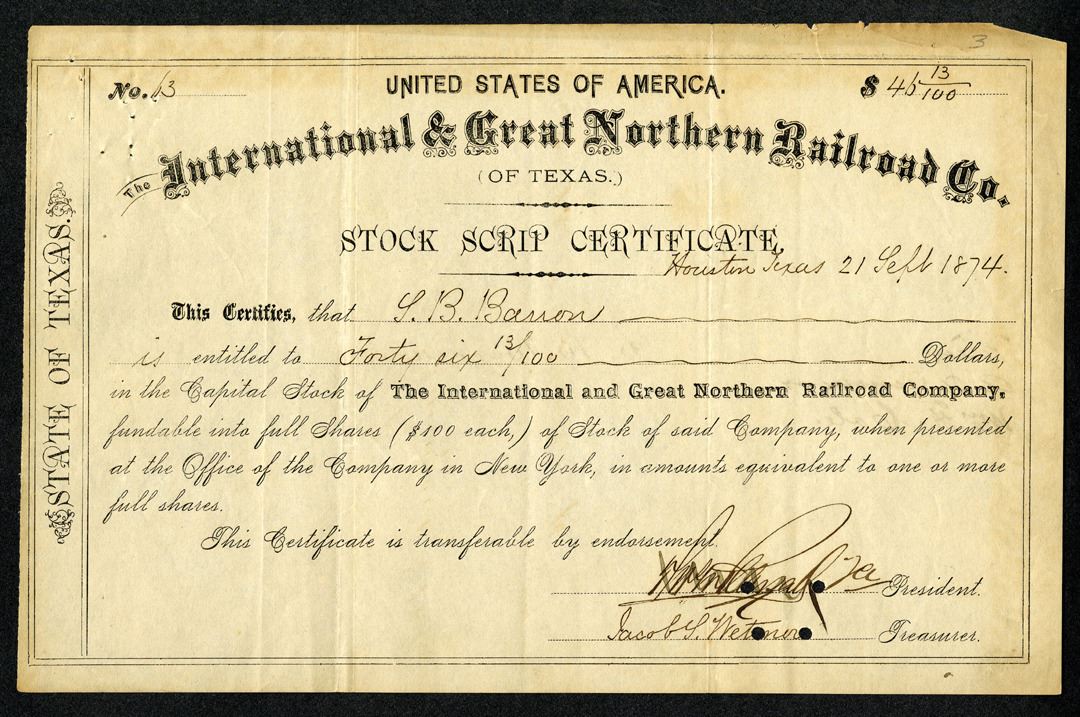 3
No. 13 UNITED STATES OF AMERICA. $ 46 13/100
The International & Great Northern Railroad Co.
(OF TEXAS.)
STOCK SCRIP CERTIFICATE,
Houston Texas 21 Sept 1874.
This Certifies, that S. B. Barron
is entitled to Forty six 13/100 Dollars,
in the Capital Stock of The International and Great Northern Railroad Company,
fundable into full Shares ($100 each,) of Stock of said Company, when presented
at the Office of the Company in New York, in amounts equivalent to one or more
full shares.
This Certificate is transferable by endorsement.
President.
Jacob S. Wetmore Treasurer.
STATE OF TEXAS.